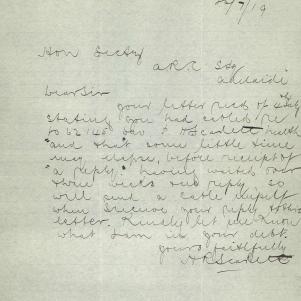 21/7/19
Hon Secty
A.R.C. Socy
Adelaide
Dear Sir
your letter recd of 4th July
stating you had cabled re
to 52146 Dvr. F. H Scarlett health
and that some little time
may elapse, before receipt of
a reply, having waited over
three weeks and reply, so
will send a cable myself
when I receive your reply to this
letter. Kindly let me know
what I am in your debt.
yours faithfully
A R Scarlett